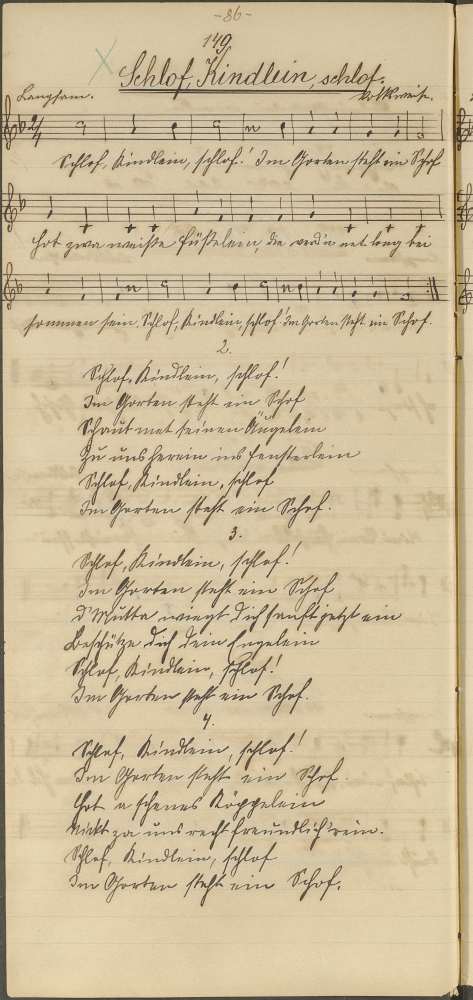 -86-
149
Schlof, Kindlein, schlof.
Langsam. Volksweise.
2/4
Schlof, Kindlein, schlof! Im Gorten steht ein Schof
Hot zwa weiße Füßelein, die werd'n net long bei
sommen sein. Schlof, Kindlein, schlof! Im Gorten steht ein Schof.
2.
Schlof, Kindlein, schlof!
Im Gorten steht ein Schof
Schaut met seinen Äugelein
Zu uns herein ins Fensterlein
Schlof, Kindlein, schlof
Im Gorten steht ein Schof.
3.
Schlof, Kindlein, schlof!
Im Gorten steht ein Schof
d'Mutta wiegt dich sanft jetzt ein
Beschütze dich dein Engelein
Schlof, Kindlein, schlof!
Im Gorten steht ein Schof.
4.
Schlof, Kindlein, schlof!
Im Gorten steht ein Schof.
Hot a schenes Köppelein
Nickt za uns recht freundlich rein.
Schlof, Kindlein, schlof
Im Gorten steht ein Schof.